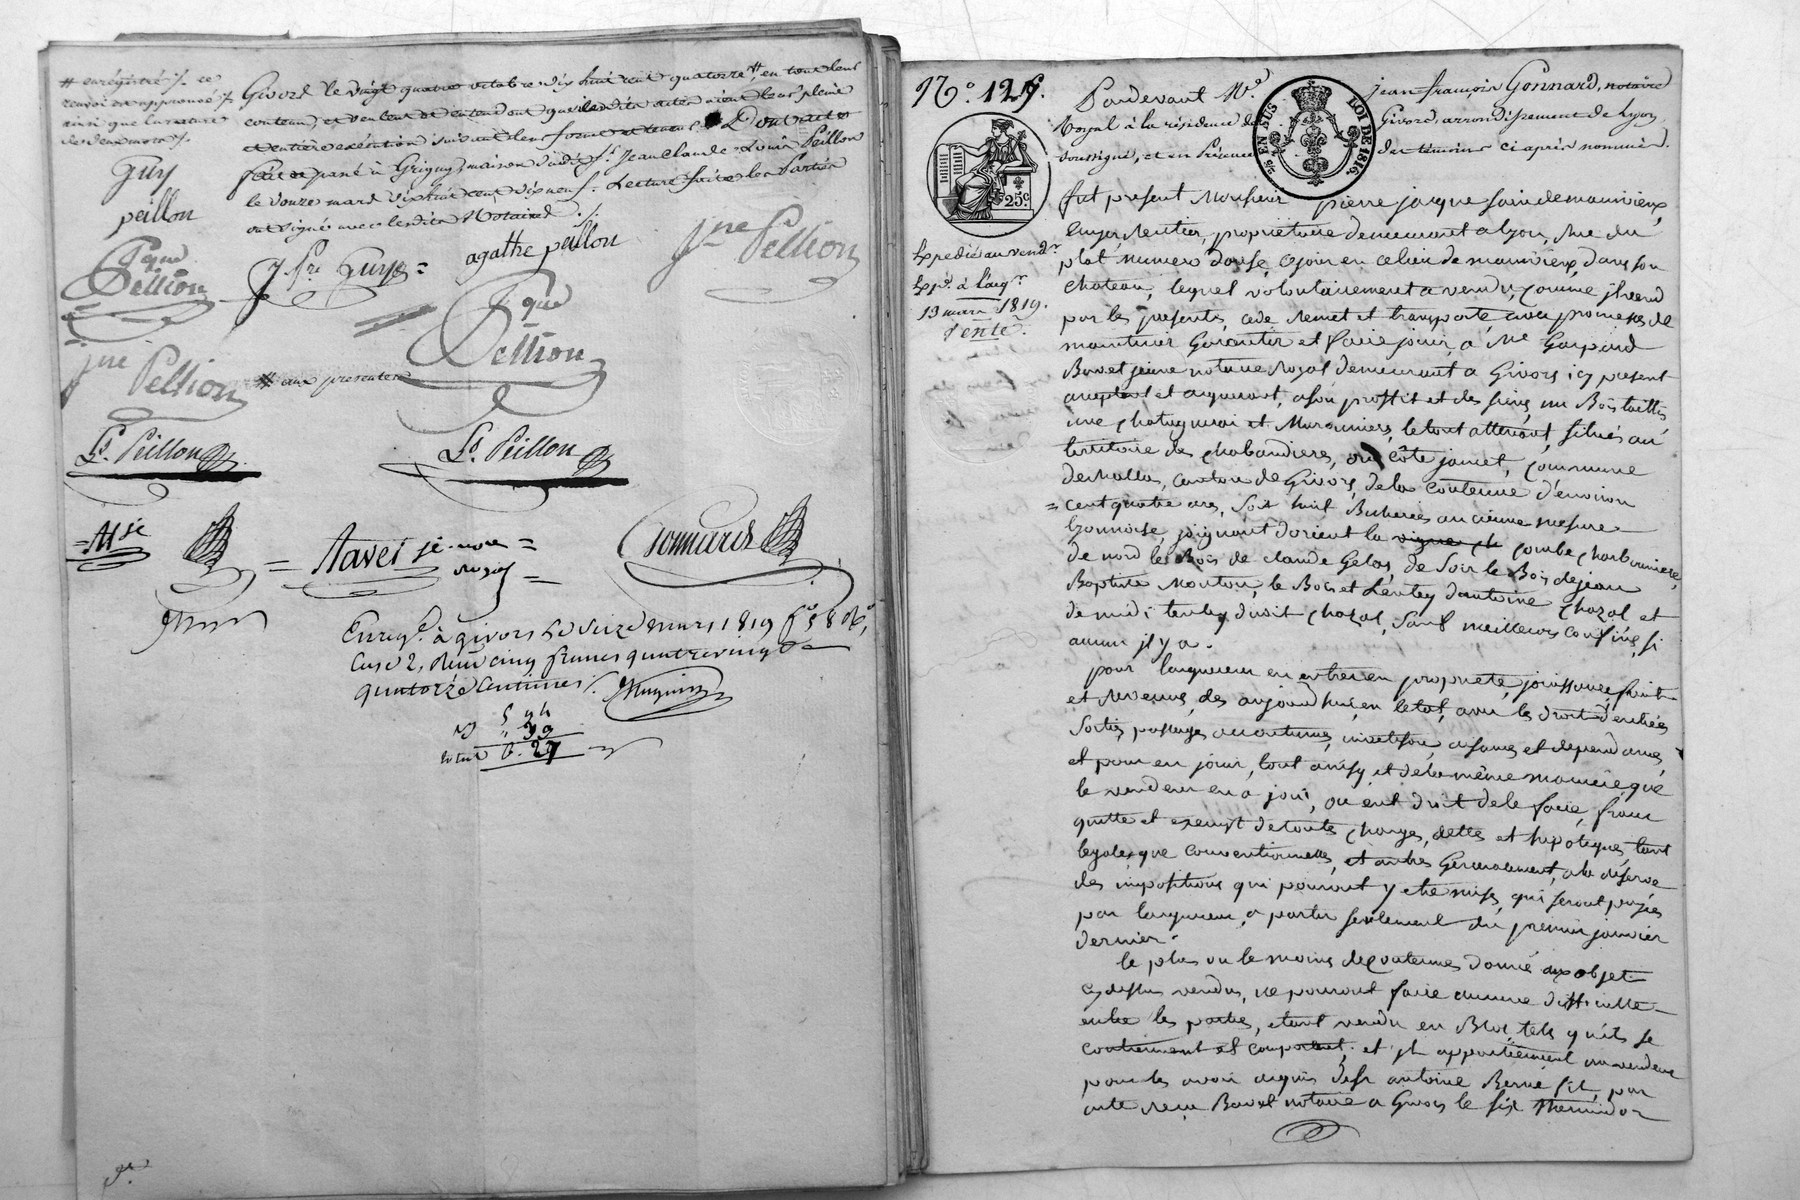 # enregistré ./. ce
renvoi est approuvé ./.
ainsi que la rature
de deux mots ./.
Givors le vingt quatre octobre dix huit cent quatorze #, en tout leur
contenu, et veulent et entendent que lesdits actes aient leur pleine
et entière exécution suivant leur forme et teneur. Dont acte
fait et passé à Grigny, maison dudit Sr. Jean Claude Louis Peillon
le douze mars dix huit cent dix neuf. Lecture faite les Parties
ont signé avec lesdits Notaires ./.
Guy
peillon
J Fre Guy =
agathe peillon
Jne Pellion
Jque
Pellion
Jque
Pellion
Jne Pellion
# aux presentes
Ls. Peillon
Ls. Peillon
= Bavet je. nore =
royal =
Gonnard
Enregé. à givors le Seize mars 1819 fo 58 Ro,
Case 2, Reçu cinq francs quatrevingt
quatorze centimes ./.
5 94
" 59
total 6. 27
No. 125.
Pardevant Me. jean françois Gonnard, notaire
Royal à la résidence de Givors, arrondissement de Lyon,
soussigné, et en présence des témoins ci après nommés.
25 c
25 c. EN SUS
LOI DE 1816.
Expedié au vendr.
Expé. à l'aqr.
13 mars 1819.
Vente.
fut present Monsieur pierre jacque
rentier, propriétaire demeurant a lyon, rue du
plat numero douse, en celieu de manivieux, dans son
chateau, lequel volontairement a vendu, comme jl vend
par les presentes, cede remet et transporte, avec promesse de
maintenir Garantir et faire jouir, a Me Gaspard
Bavet jeune notaire royal demeurant a Givors, icy present
acceptant et acquerant, a son proffit et des siens, un Bois taillis
une chataigneraie et Maronniers, le tout attenant, situés au
territoire des chabaudieres, ou côte jamet, commune
de canton de Givors, de la contenue d'environ
= cent quatre ares, soit huit Bicherées ancienne mesure
lyonnoise, joignant d'orient la vigne combe charbonniere,
de nord le Bois de claude Gelas, de soir le Bois de jean
Baptiste Mouton, le Bois et d'antoine chazal et
de midi dudit chazal, sauf meilleurs confins, si
aucun jl y a.
pour l'acquereur en entrer en propriété, jouissance, fruit
et revenus, des aujourd'hui, en letat, avec les droits d'entrées
sorties, passages accoutumés, aisances et dependances,
et pour en jouir, tout ainsy et de la même maniere que
le vendeur en a joui, ou eut droit de le faire, franc
quitte et exempt de toute charges, dettes et hipoteques tant
legales que conventionnelles, et autres Generalement, a la réserve
des impositions qui pouront y etre mises, qui seront payées
par l'acquereur, a partir seulement du premier janvier
dernier.
le plus ou le moins de contenues donné aux objet
cy dessus vendus, ne pouront faire aucune difficulté
entre les parties, etant vendu en Bloc tels qu'ils se
contiennent et comportent, et jls appartiennent au vendeur
pour les avoir acquis de sr antoine Berne fils, par
acte reçu Bavet notaire a Givors le six thermidor